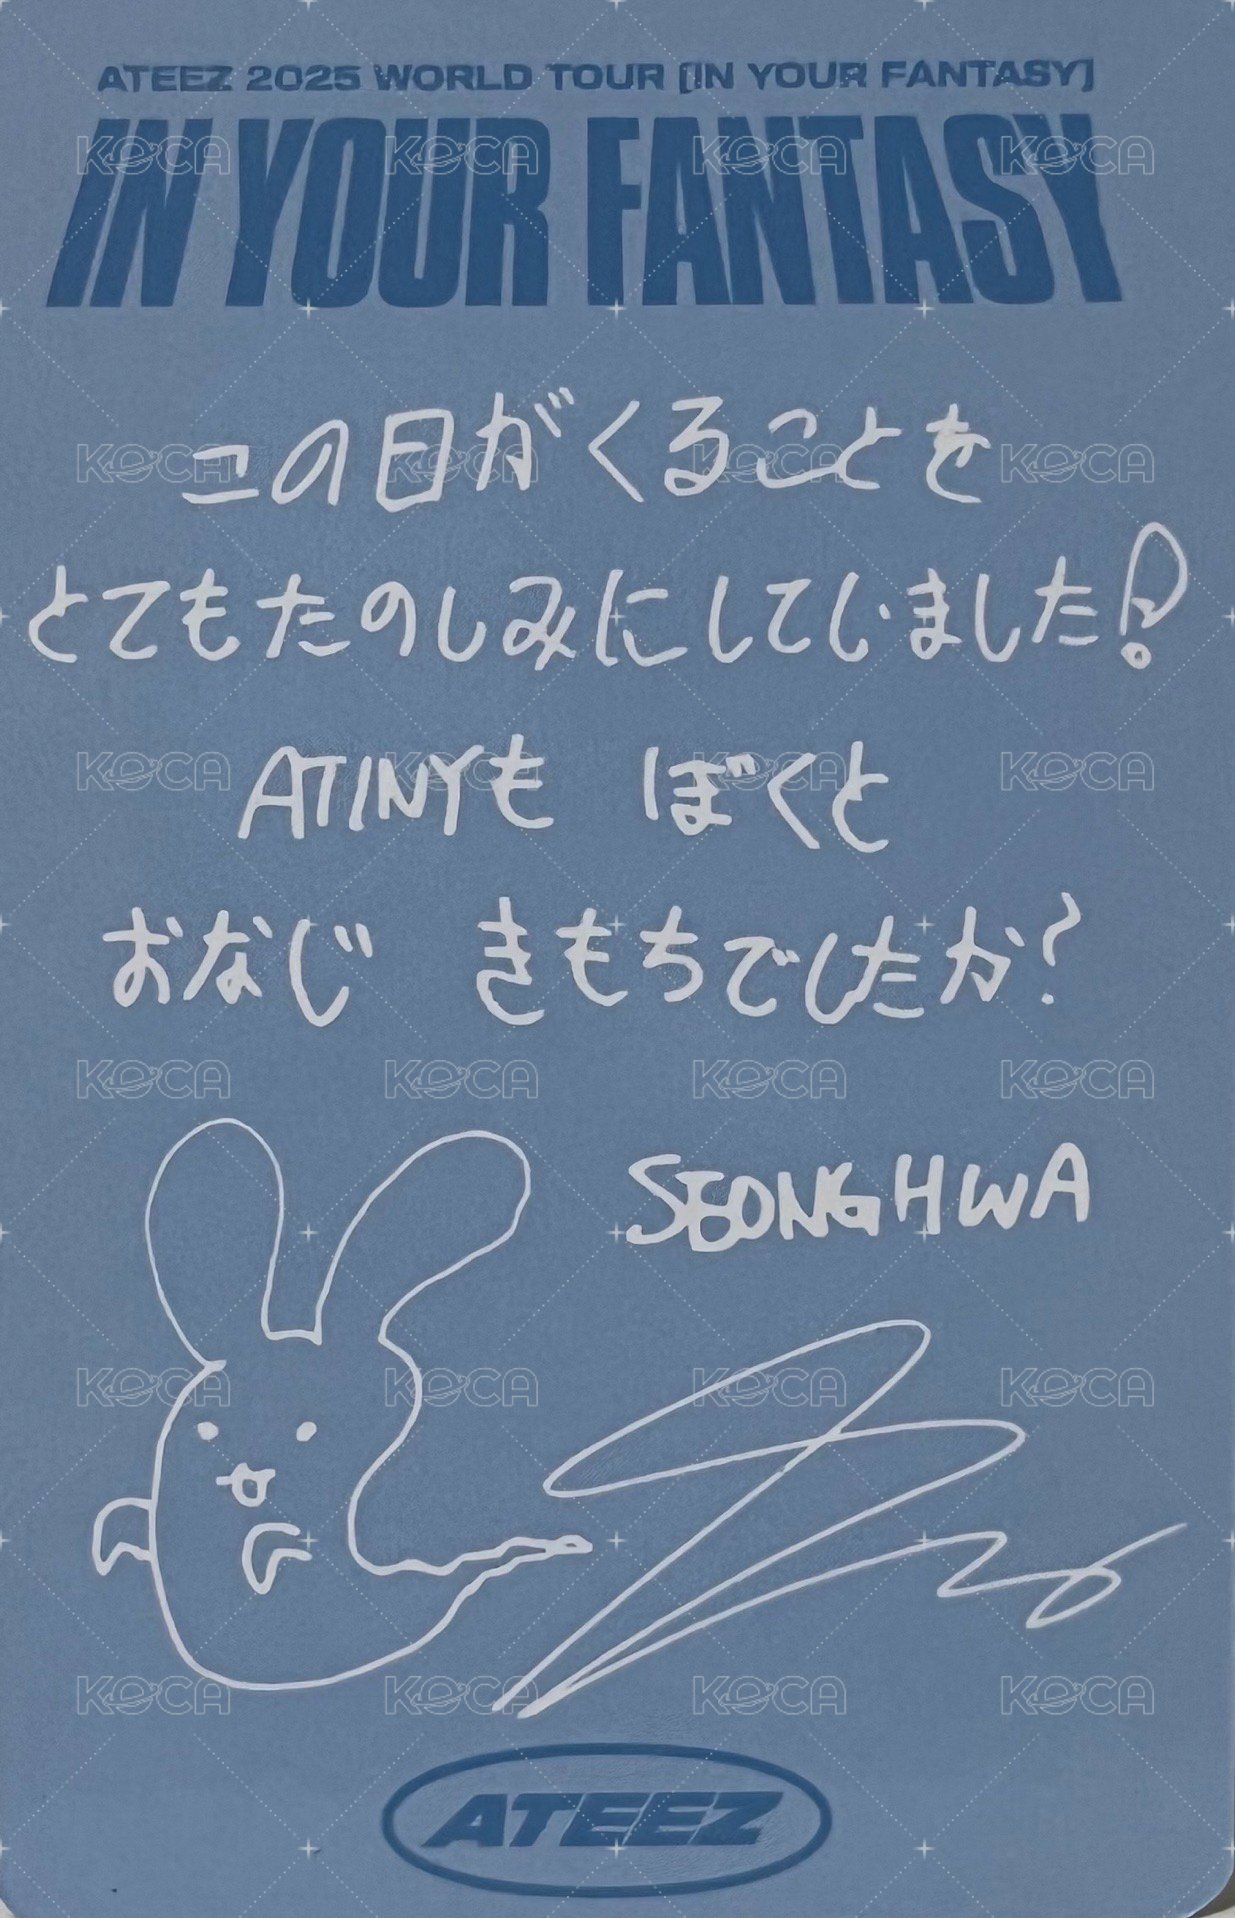 ATEEZ 2025 WORLD TOUR [IN YOUR FANTASY]
IN YOUR FANTASY
この日がくることを
とてもたのしみにしていました!
ATINYも ぼくと
おなじ きもちでしたか?
SEONGHWA
ATEEZ
KOCA